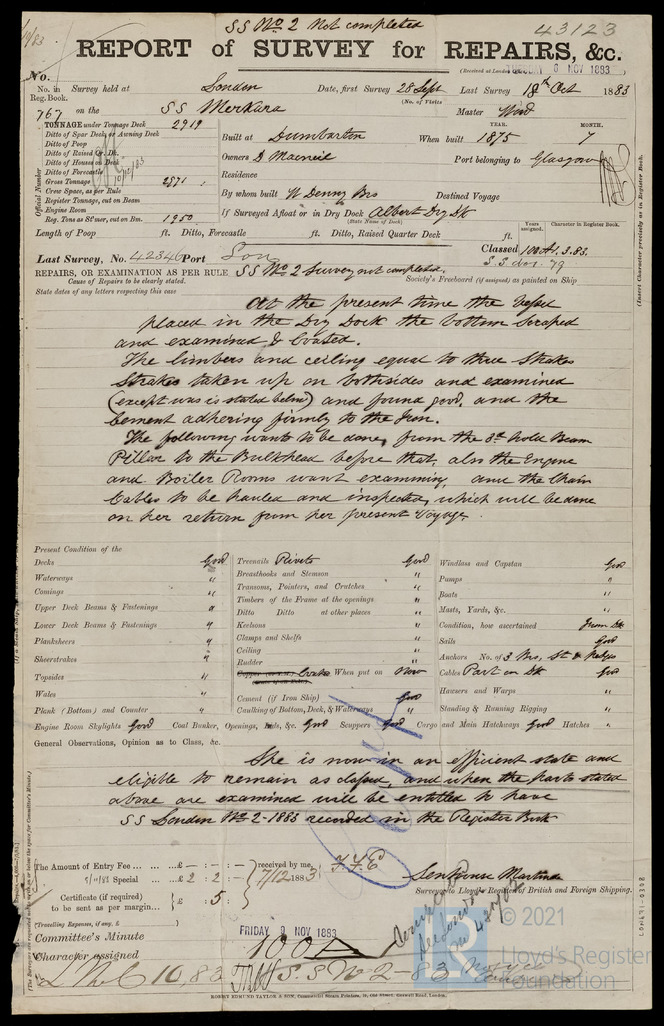 SS No 2 Not completed
43123
REPORT of SURVEY for REPAIRS, &c.
(Received at London
6 NOV 1883
No.
No. in Survey held at London Date, first Survey 28 Sept Last Survey 18th Oct 1883
Reg. Book. (No. of Visits
767 on the SS Merkara Master Wood
TONNAGE under Tonnage Deck 2919
Ditto of Spar Deck, or Awning Deck
Ditto of Poop
Ditto of Raised Qr. Dk.
Ditto of Houses on Deck
Ditto of Forecastle
Gross Tonnage 2971
Crew Space, as per Rule
Register Tonnage, cut on Beam
Engine Room
Reg. Tons as Stmer, cut on Bm. 1950
Official Number
YEAR. MONTH.
Built at Dumbarton When built 1875 7
Owners D Macneil Port belonging to Glasgow
Residence
By whom built W Denny Bros Destined Voyage
If Surveyed Afloat or in Dry Dock Albert Dry Dk
(State Name of Dock)
Length of Poop ft. Ditto, Forecastle ft. Ditto, Raised Quarter Deck ft.
Years assigned. Character in Register Book.
Last Survey, No. 42346 Port Lon
Classed 100A1.3.83.
S.S Nov. 79
REPAIRS, OR EXAMINATION AS PER RULE SS No 2 Survey not completed.
Cause of Repairs to be clearly stated.
Society's Freeboard (if assigned) as painted on Ship
State dates of any letters respecting this case
At the present time the Vessel
placed in the Dry Dock the bottom Scraped
and examined & Coated.
The limbers and ceiling equal to three Strakes
Strakes taken up on both sides and examined
(except was is stated below) and found good, and the
Cement adhering firmly to the Iron.
The following wants to be done, from the 3rd hold Beam
Pillar to the Bulkhead before that, also the Engine
and Boiler Rooms want examining, and the Chain
Cables to be hauled and inspected, which will be done
on her return from her present Voyage.
(Insert Character precisely as in Register Book.
Present Condition of the
Decks Good
Waterways "
Comings "
Upper Deck Beams & Fastenings "
Lower Deck Beams & Fastenings "
Planksheers "
Sheerstrakes "
Topsides "
Wales "
Plank (Bottom) and Counter "
Treenails Rivets Good
Breasthooks and Stemson "
Transoms, Pointers, and Crutches "
Timbers of the Frame at the openings "
Ditto Ditto at other places "
Keelsons "
Clamps and Shelfs "
Ceiling "
Rudder "
Coated When put on Now
Cement (if Iron Ship) Good
Caulking of Bottom, Deck, & Waterways "
Windlass and Capstan Good
Pumps "
Boats "
Masts, Yards, &c. "
Condition, how ascertained from Dk
Sails Good
Anchors No. of 3 Brs, St & Kedges
Cables Part on Dk Good
Hawsers and Warps "
Standing & Running Rigging "
Engine Room Skylights Good Coal Bunker, Openings, lids, &c. Good Scuppers Good Cargo and Main Hatchways Good Hatches "
General Observations, Opinion as to Class, &c.
She is now in an efficient state and
eligible to remain as classed, and when the parts stated
above are examined will be entitled to have
SS London No 2-1883 recorded in the Register Book
The Amount of Entry Fee ... ...£ - : - : -
Special ... ..£ 2 : 2 : -
Certificate (if required) to be sent as per margin... £ : 5 :
(Travelling Expenses, if any, £ )
received by me,
7/12 1883
Senhouse Martindale
Surveyor to Lloyd's Register of British and Foreign Shipping.
Committee's Minute FRIDAY 9 NOV 1883
Character assigned 100A
LMC 10,83 S.S No 2-83
ROBERT EDMUND TAYLOR & SON, Commercial Steam Printers, 19, Old Street, Goswell Road, London.
© 2021
Lloyd's Register
Foundation